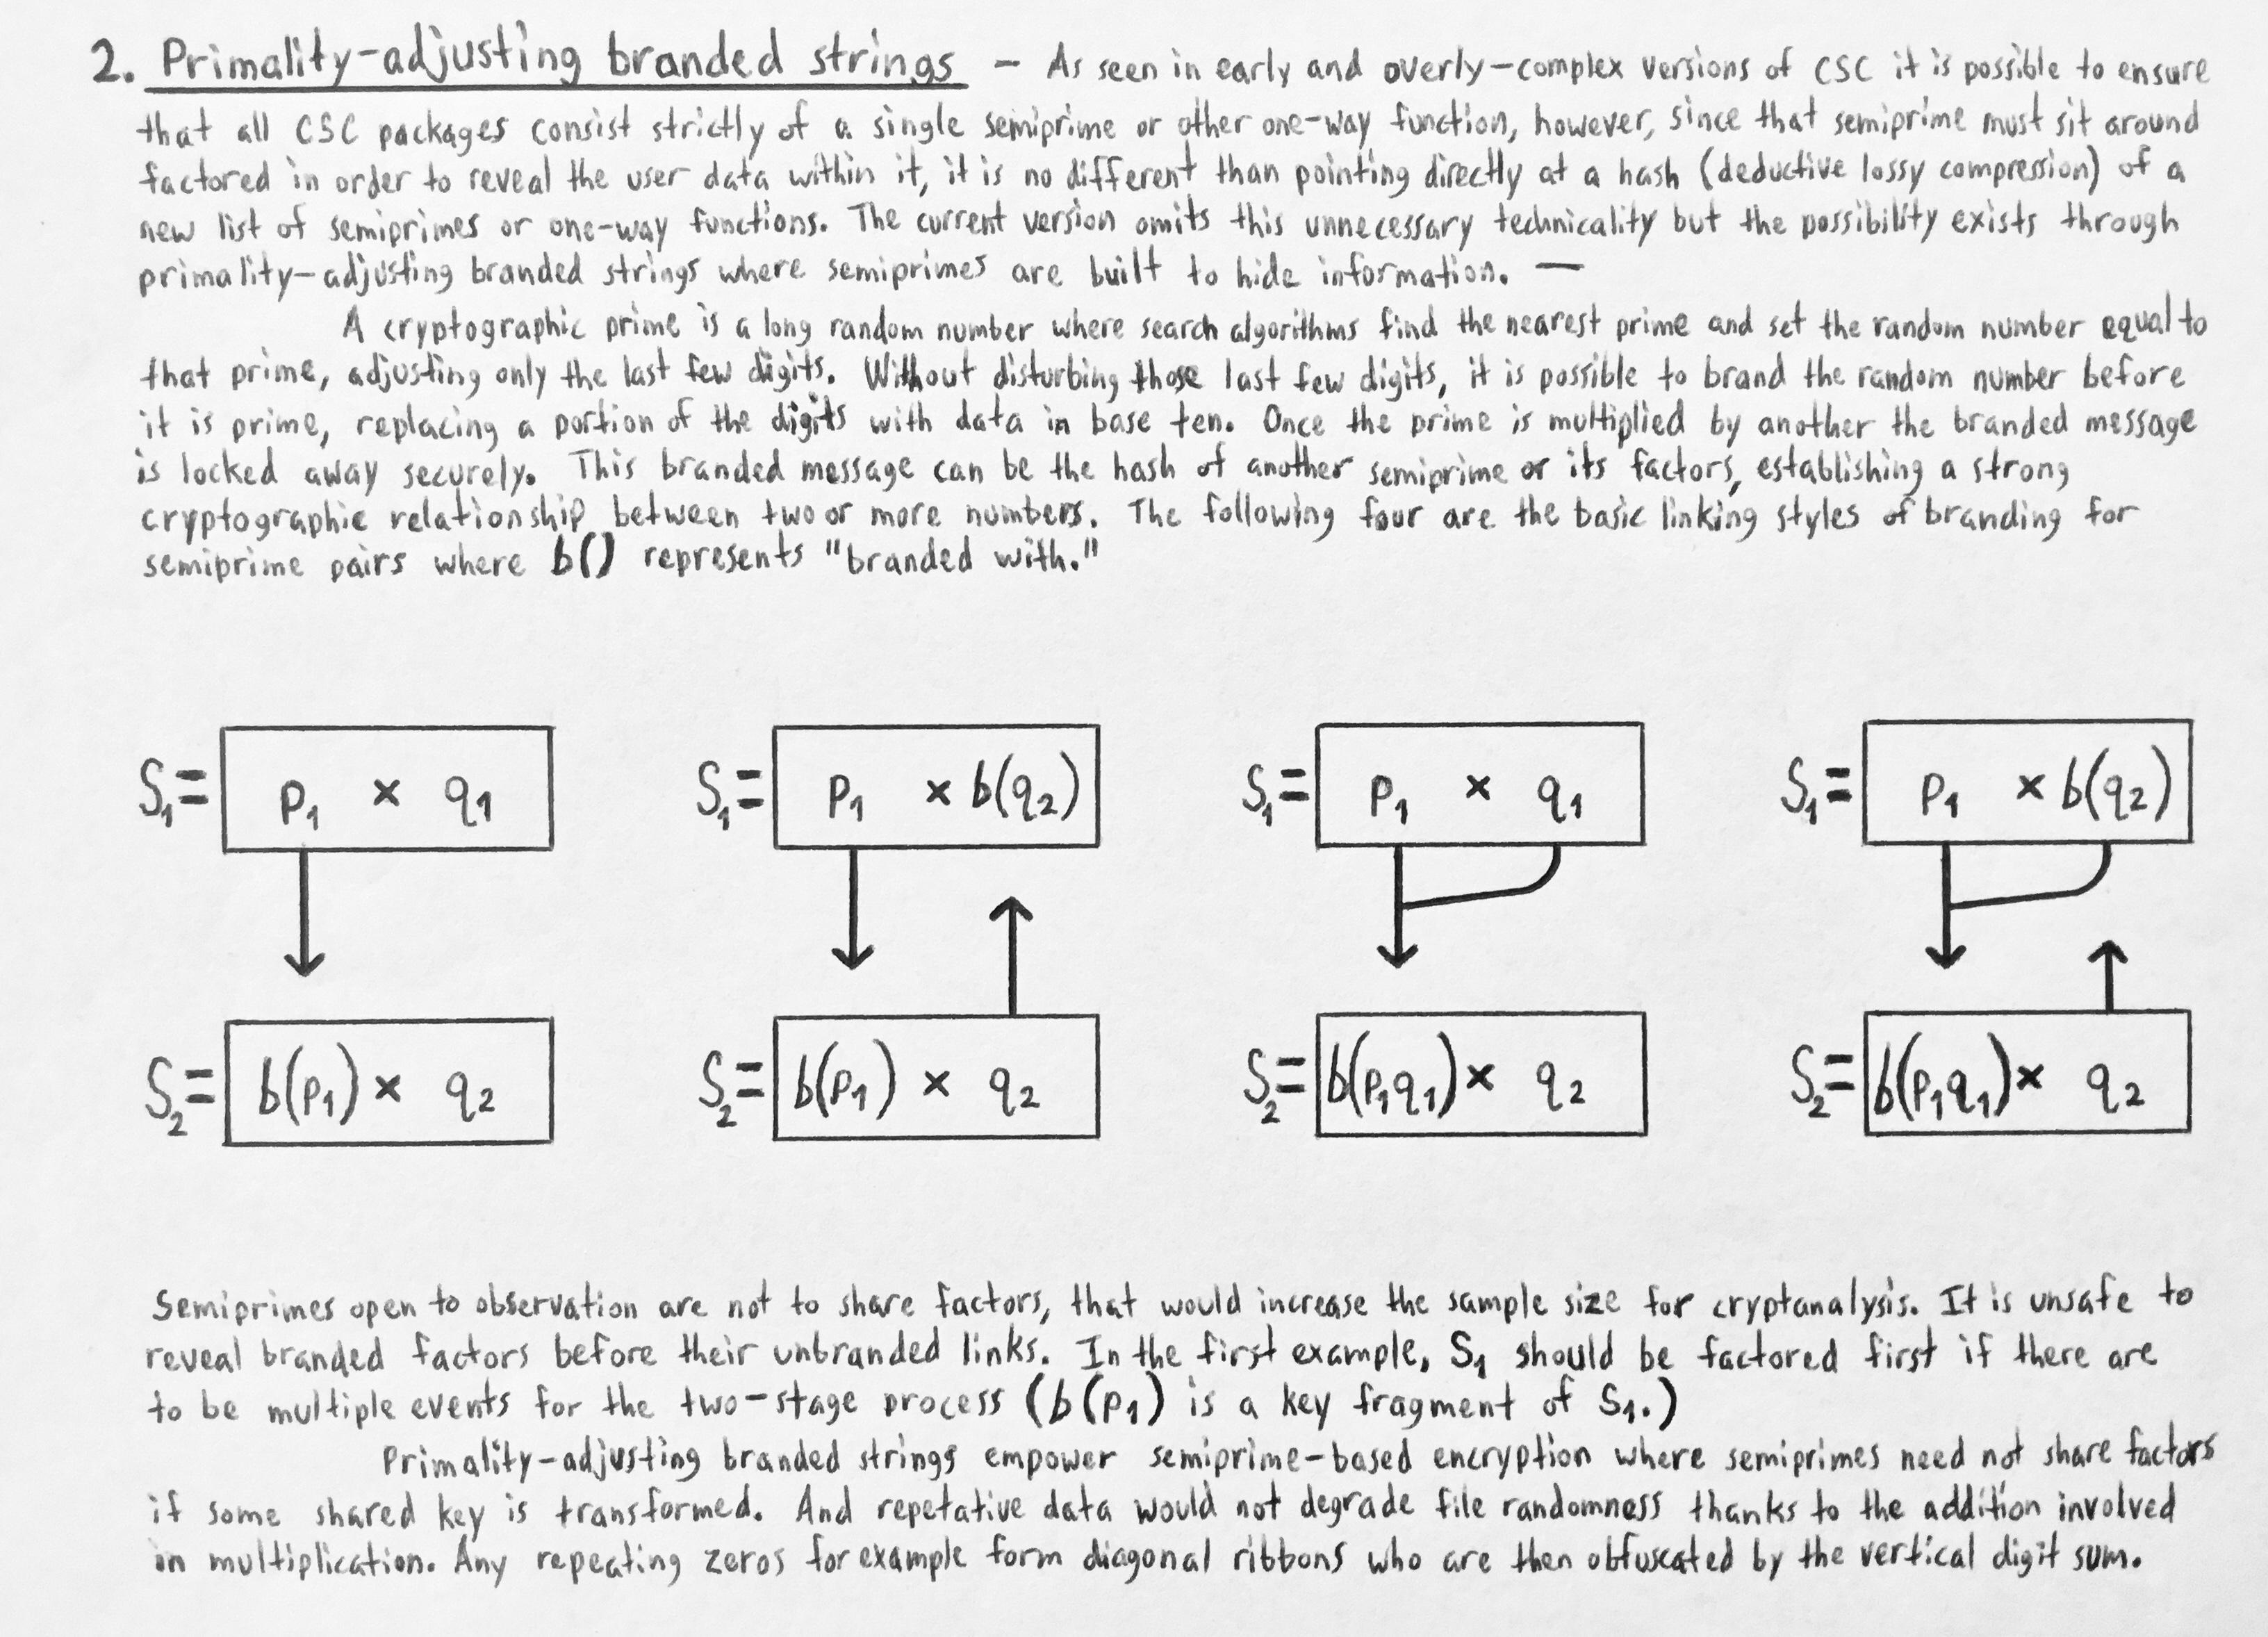 2. Primality-adjusting branded strings — As seen in early and overly-complex versions of CSC it is possible to ensure
that all CSC packages consist strictly of a single semiprime or other one-way function, however, since that semiprime must sit around
factored in order to reveal the user data within it, it is no different than pointing directly at a hash (deductive lossy compression) of a
new list of semiprimes or one-way functions. The current version omits this unnecessary technicality but the possibility exists through
primality-adjusting branded strings where semiprimes are built to hide information. —
A cryptographic prime is a long random number where search algorithms find the nearest prime and set the random number equal to
that prime, adjusting only the last few digits. Without disturbing those last few digits, it is possible to brand the random number before
it is prime, replacing a portion of the digits with data in base ten. Once the prime is multiplied by another the branded message
is locked away securely. This branded message can be the hash of another semiprime or its factors, establishing a strong
cryptographic relationship between two or more numbers. The following four are the basic linking styles of branding for
semiprime pairs where b() represents "branded with."
S₁= p₁ × q₁
S₁= p₁ × b(q₂)
S₁= p₁ × q₁
S₁= p₁ × b(q₂)
S₂= b(p₁) × q₂
S₂= b(p₁) × q₂
S₂= b(p₁q₁) × q₂
S₂= b(p₁q₁) × q₂
Semiprimes open to observation are not to share factors, that would increase the sample size for cryptanalysis. It is unsafe to
reveal branded factors before their unbranded links. In the first example, S₁ should be factored first if there are
to be multiple events for the two-stage process (b(p₁) is a key fragment of S₁.)
Primality-adjusting branded strings empower semiprime-based encryption where semiprimes need not share factors
if some shared key is transformed. And repetative data would not degrade file randomness thanks to the addition involved
in multiplication. Any repeating zeros for example form diagonal ribbons who are then obfuscated by the vertical digit sum.